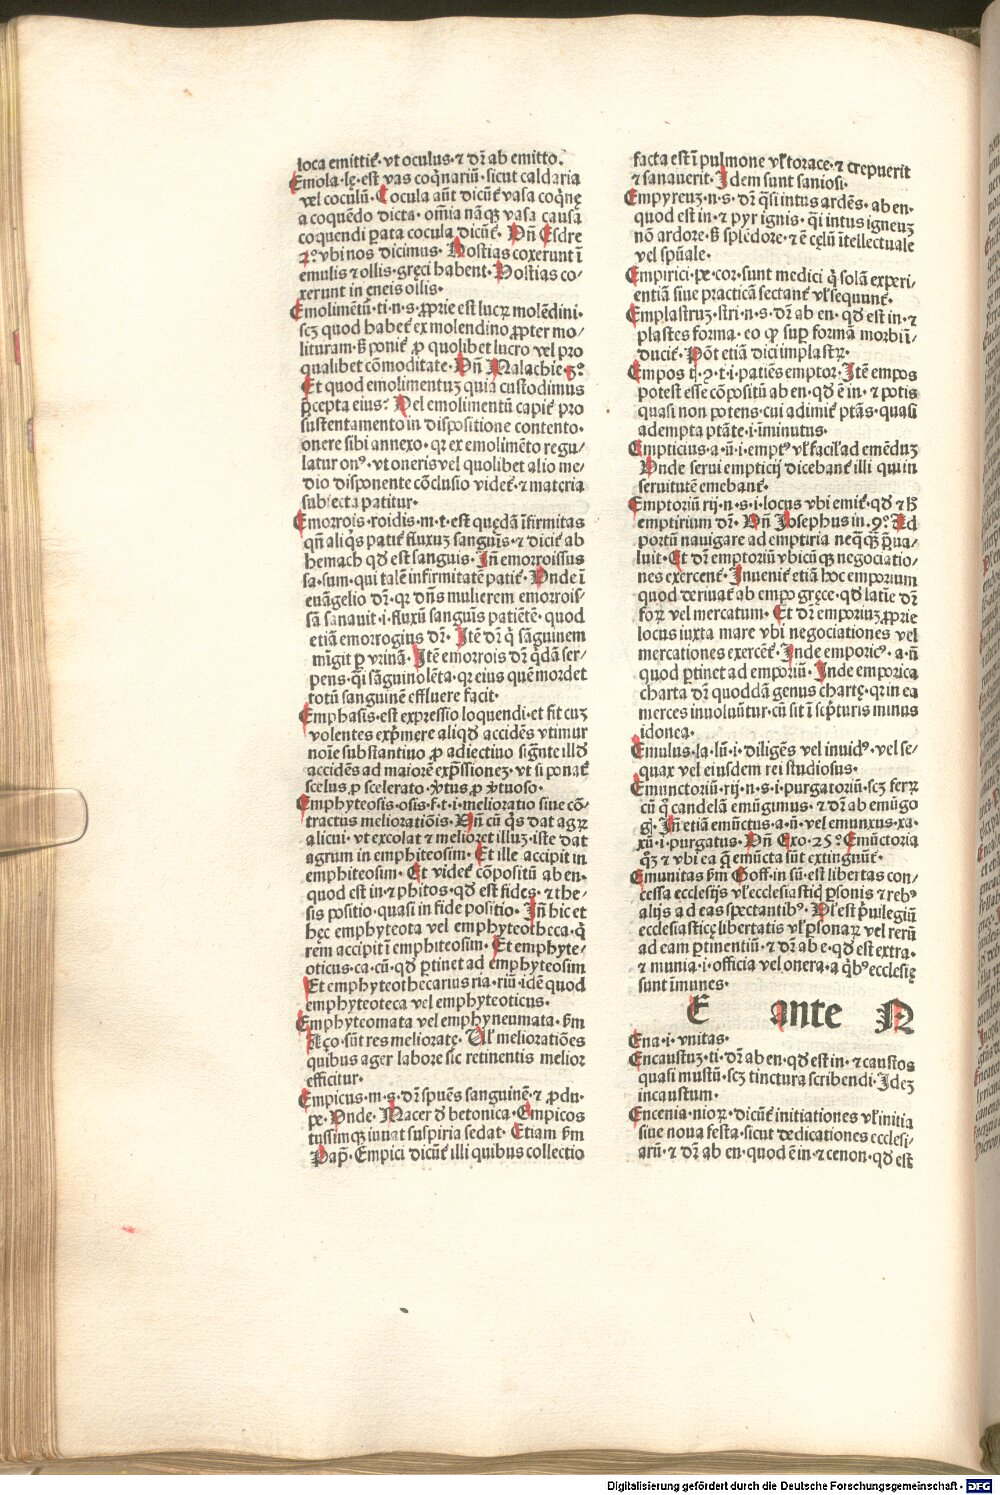 loca emittit᷒· vt oculus· ⁊ dr̄ ab emitto.
Emola· lę· est vas coq̄nariū· sicut caldaria
vel coculū· Cocula aūt dicūt᷒ vasa coq̄nę
a coquēdo dicta· om̄ia nāqꝫ vasa causa
coquendi ꝑata cocula dicūt᷒· Vn̄ Esdre
2º· vbi nos dicimus· Hostias coxerunt ī
emulis ⁊ ollis· gręci habent· Hostias co-
xerunt in ęneis ollis·
Emolimētū· ti· n· s· ꝓprie est lucꝝ molēdini·
scꝫ quod habet᷒ ex molendino ꝓpter mo/
lituram· ß ponit᷒ ꝓ quolibet lucro vel pro
qualibet cōmoditate· Vn̄ Malachie·
Et quod emolimentuꝫ quia custodimus
p̄cepta eius? Vel emolimentū capit᷒ pro
sustentamento in dispositione contento·
onere sibi annexo· qꝛ ex emolimēto regu/
latur onꝰ· vt oneris vel quolibet alio me/
dio disponente cōclusio videt᷒· ⁊ materia
subiecta patitur·
Emorrois· roidis· m· t· est quędā īfirmitas
qn̄ aliq̇s patit᷒ fluxuꝫ sanguīs· ⁊ dicit᷒ ab
hemach qd̄ est sanguis· Jn̄ emorroissus
sa· sum· qui talē infirmitatē patit᷒· Vnde ī
euāgelio dr̄· qꝛ dn̄s mulierem emorrois/
sā sanauit· i· fluxū sanguīs patiētē· quod
etiā emorrogius dr̄· Jtē dr̄ q̇ sāguinem
mīgit ꝑ vrinā· Jtē emorrois dr̄ q̄dā ser/
pens· q̇i sāguinolēta· qꝛ eius quē mordet
totū sanguinē effluere facit·
Emphasis· est expressio loquendi· et fit cuꝫ
volentes exp̄mere aliqd̄ accidēs vtimur
noīe substantiuo ꝓ adiectiuo sig̅nte illd̄
accidēs ad maiorē exp̄ssioneꝫ· vt si ponat᷒
scelus ꝓ scelerato· ꝟtus ꝓ ꝟtuoso·
Emphyteosis· osis· f· t· i· melioratio siue cō-
tractus melioratiōis· Vn̄ cū q̇s dat agꝝ
alicui· vt excolat ⁊ melioret illuꝫ· iste dat
agrum in emphiteosim· Et ille accipit in
emphiteosim· Et videt᷒ cōpositū ab en·
quod est in· ⁊ phitos· qd̄ est fides· ⁊ the/
sis positio· quasi in fide positio· Jn̄ hic et
hęc emphyteota vel emphyteotheca· q̇
rem accipit ī emphiteosim· Et emphyte/
oticus· ca· cū· qd̄ ꝑtinet ad emphyteosim
Et emphyteothecarius ria· riū· idē quod
emphyteoteca vel emphyteoticus·
Emphyteomata vel emphyneumata· ẜm
Aço· sūt res melioratę· Vl᷒ melioratiōes
quibus ager labore sic retinentis melior
efficitur·
Empicus· m· s· dr̄ spuēs sanguinē· ⁊ ꝓdu·
pe· Vnde· Macer d̄ betonica· Empicos
tussimqꝫ iuuat suspiria sedat· Etiam ẜm
Pap̄· Empici dicūt᷒ illi quibus collectio
facta est ī pulmone vl᷒ torace· ⁊ crepuerit
⁊ sanauerit· Jdem sunt saniosi·
Empyreuꝫ· n· s· dr̄ q̄si intus ardēs· ab en·
quod est in· ⁊ pyr ignis· q̇i intus igneuꝫ
nō ardore· ß splēdore· ⁊ ē cęlū ītellectuale
vel spūale·
Empirici· pe· cor· sunt medici q̇ solā experi/
entiā siue practicā sectant᷒ vl᷒ sequunt᷒·
Emplastruꝫ· stri· n· s· dr̄ ab en· qd̄ est in· ⁊
plastes forma· eo ꝙ suꝑ formā morbi ī-
ducit᷒· Pōt etiā dici implastꝝ·
Empos ij· ꝯ· t· i· patiēs emptor· Jtē empos
potest esse cōpositū ab en· qd̄ ē in· ⁊ potis
quasi non potens· cui adimit᷒ ptās· quasi
adempta ptāte· i· īminutus·
Empticius· a· ū· i· emptꝰ vl᷒ facil᷒ ad emēduꝫ
Vnde serui empticij dicebant᷒ illi qui in
seruitutē emebant᷒·
Emptoriū rij· n· s· i· locus vbi emit᷒· qd̄ ⁊ h̄
emptirium dr̄· Vn̄ Josephus in· 9º· Ad
portū nauigare ad emptiria neq̄qꝫ p̄ua/
luit· Et dr̄ emptoriū vbicūqꝫ negociatio/
nes exercent᷒· Jnuenit᷒ etiā hoc emporium
quod deriuat᷒ ab empo gręce· qd̄ latīe dr̄
foꝝ vel mercatum· Et dr̄ emporiuꝫ ꝓprie
locus iuxta mare vbi negociationes vel
mercationes exercēt᷒· Jnde emporicꝰ· a· ū
quod ꝑtinet ad emporiū· Jnde emporica
charta dr̄ quoddā genus chartę· qꝛ in ea
merces inuoluūtur· cū sit ī scp̄turis minus
idonea·
Emulus· la· lū· i· diligēs vel inuidꝰ· vel se/
quax vel eiusdem rei studiosus·
Emunctoriū· rij· n· s· i· purgatoriū· scꝫ ferꝝ
cū q̇ candelā emūgimus· ⁊ dr̄ ab emūgo
gꝭ· Jn̄ etiā emūctus· a· ū· vel emunxus· xa·
xū· i· purgatus· Vn̄ Exo· 25º· Emūctoria
qꝫ ⁊ vbi ea q̄ emūcta sūt extingnūt᷒·
Emunitas ẜm Goff· in sū· est libertas con/
cessa ecclesijs vl᷒ ecclesiasticꝭ ꝑsonis ⁊ rebꝰ
alijs ad eas spectantibꝰ· Vl᷒ est p̄uilegiū
ecclesiasticę libertatis vl᷒ ꝑsonaꝝ vel rerū
ad eam ꝑtinentiū· ⁊ dr̄ ab e· qd̄ est extra·
⁊ munia· i· officia vel onera· a q̇bꝰ ecclesię
sunt īmunes·
E ante N
Ena· i· vnitas·
Encaustuꝫ· ti· dr̄ ab en· qd̄ est in· ⁊ caustos
quasi mustū· scꝫ tinctura scribendi· Jdeꝫ
incaustum·
Encenia· nioꝝ· dicūt᷒ initiationes vl᷒ initia
siue noua festa· sicut dedicationes ecclesi/
arū· ⁊ dr̄ ab en· quod ē in· ⁊ cenon· qd̄ est
Digitalisierung gefördert durch die Deutsche Forschungsgemeinschaft - DFG